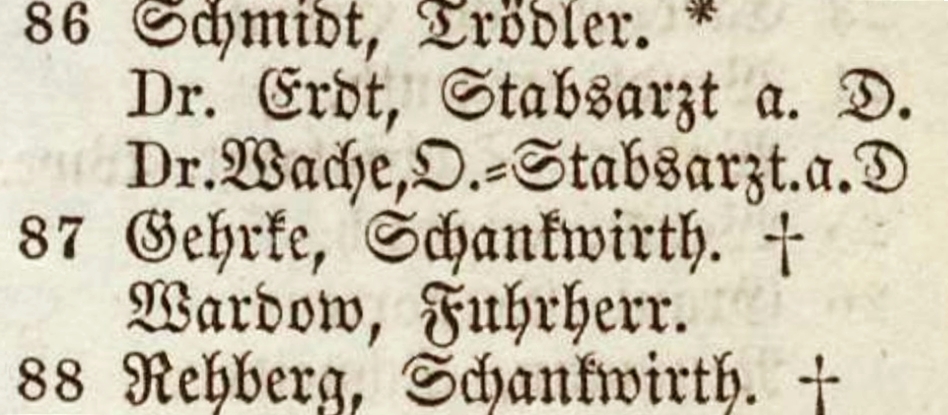 86 Schmidt, Trödler. *
Dr. Erdt, Stabsarzt a. D.
Dr. Wache, O.=Stabsarzt. a. D
87 Gehrke, Schankwirth. †
Wardow, Fuhrherr.
88 Rehberg, Schankwirth. †